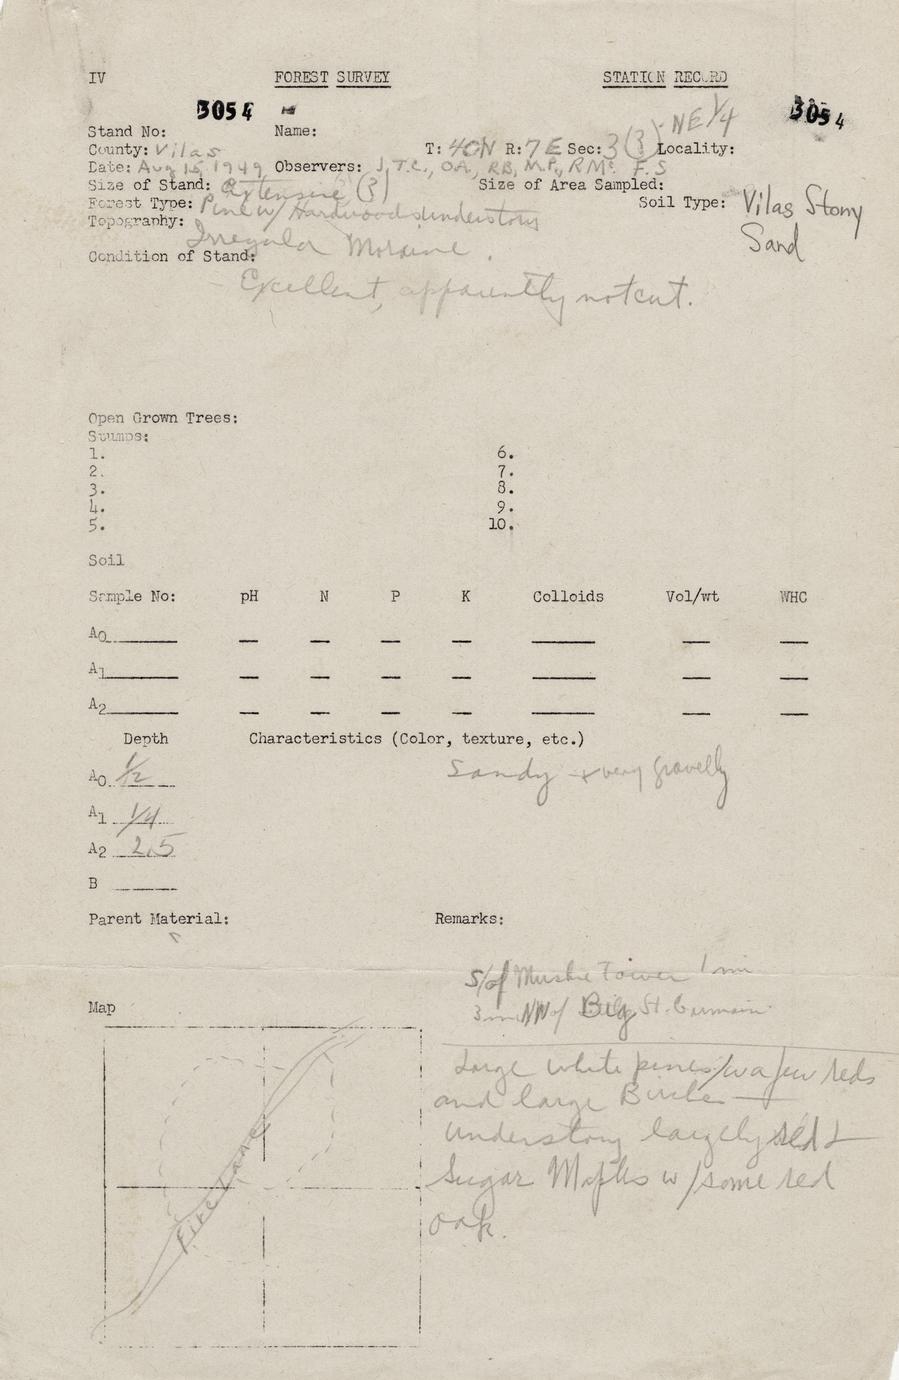 IV FOREST SURVEY STATION RECORD
3054 3054
NE 1/4
Stand No: Name:
County: Vilas T: 40N R: 7E Sec: 3 (?) Locality:
Date: Aug 15 1949 Observers: J.T.C., O.A., R.B., M.P., R.Mc. F.S
Size of Stand: Extensive (?) Size of Area Sampled:
Forest Type: Pine w/ Hardwood understory Soil Type: Vilas Stony
Sand
Topography: Irregular Moraine.
Condition of Stand:
Excellent, apparently not cut.
Open Grown Trees:
Stumps:
1. 6.
2. 7.
3. 8.
4. 9.
5. 10.
Soil
Sample No: pH N P K Colloids Vol/wt WHC
A0
A1
A2
Depth Characteristics (Color, texture, etc.)
A0 1/2 Sandy + very gravelly
A1 1/4
A2 2.5
B
Parent Material: Remarks:
S/of Muskie Tower 1 mi
3 mi NW of Big St. Germain
Map
Large white pines w/ a few reds
and large Birches —
Understory largely red &
Sugar Maples w/ some red
oak.
Fire Lane